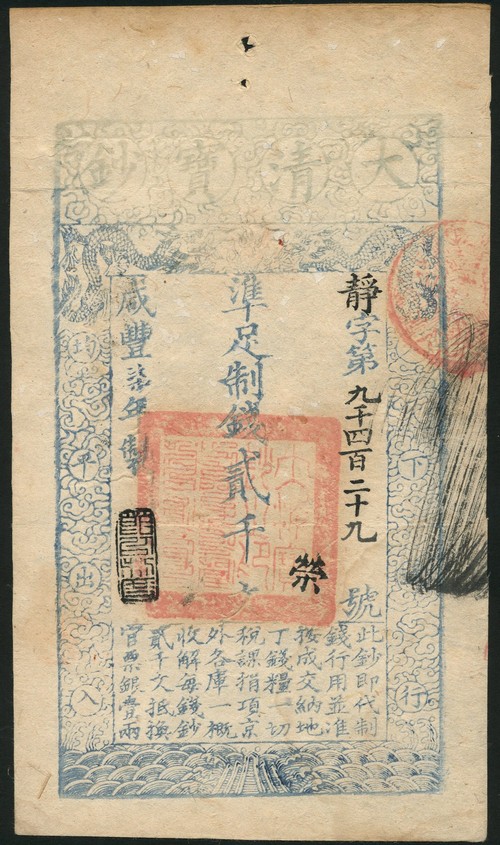 大清寶鈔
下行
靜字第九千四百二十九號
榮
準足制錢貳千
咸豐柒年製
均平出入
此鈔即代制
錢行用並准
按成交納地
丁錢糧一切
稅課捐項京
外各庫一概
收解每錢鈔
貳千文抵換
官票銀壹兩